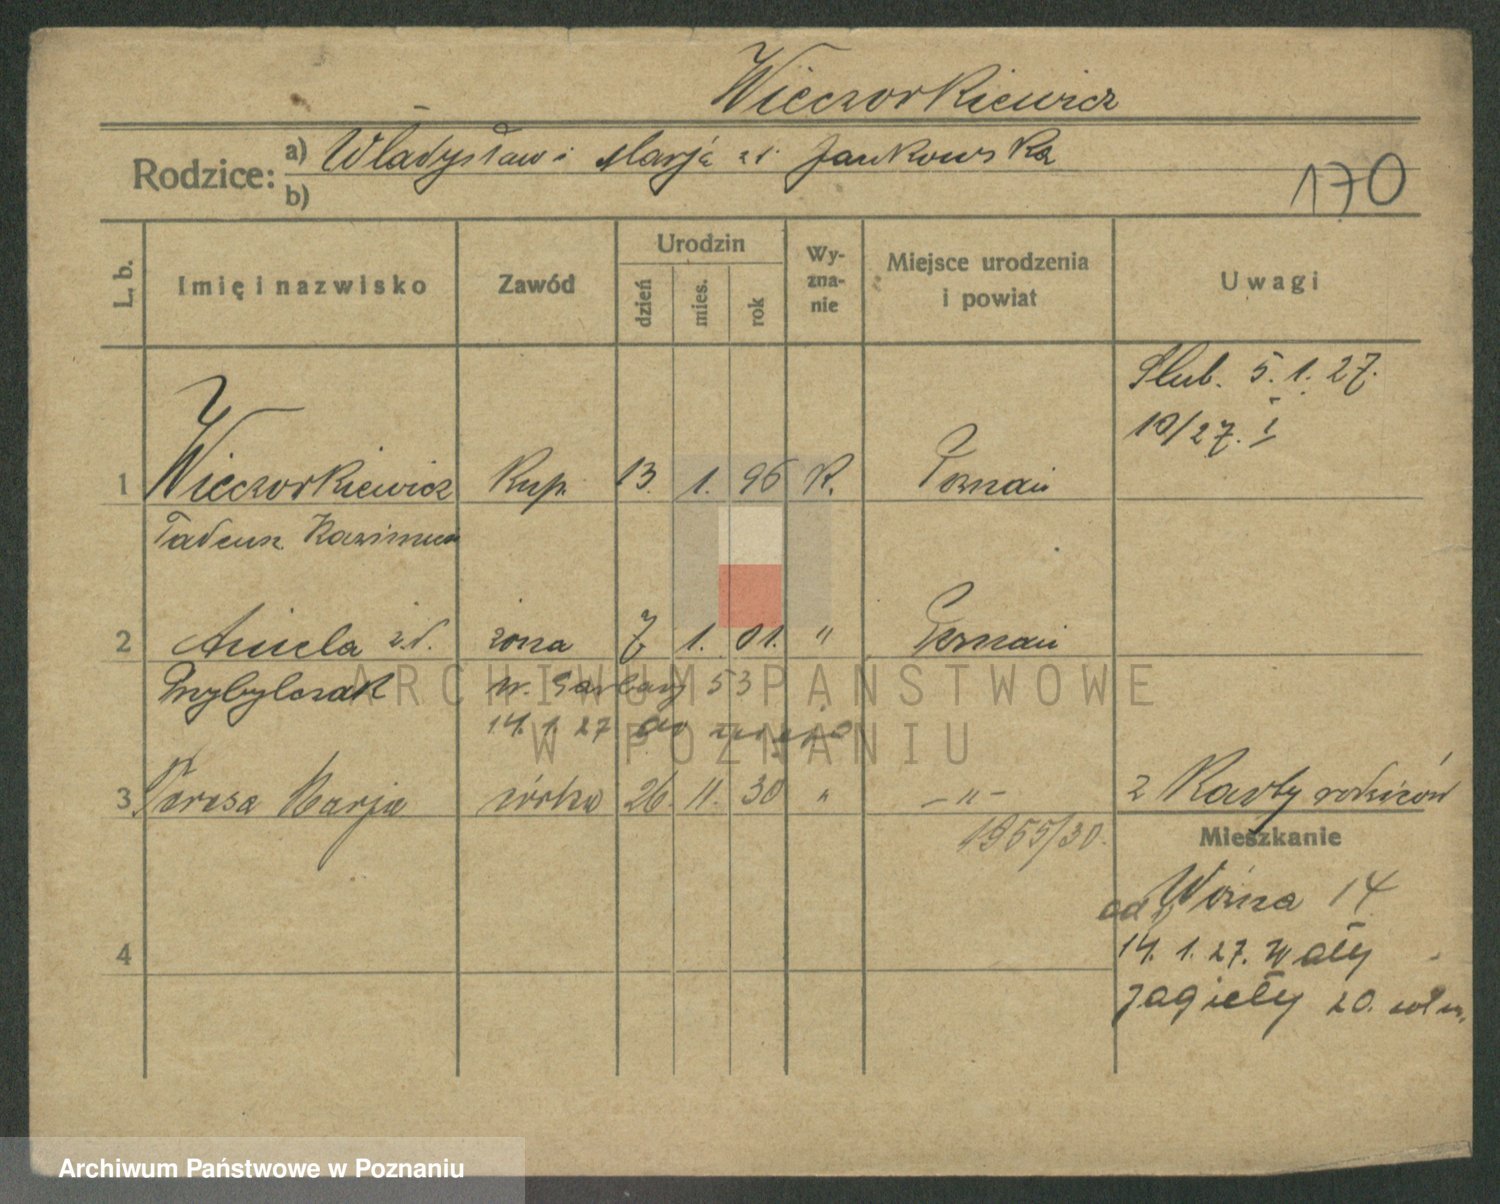 Wieczorkiewicz
Rodzice: a) Władysław i Marja z d. Jankowska
b)
170
L. b. Imię i nazwisko Zawód Urodzin dzień mies. rok Wyznanie Miejsce urodzenia i powiat Uwagi
Ślub. 5. 1. 27.
10/27. I
1 Wieczorkiewicz Kup. 13. 1. 96 K. Poznań
Tadeusz Kazimierz
2 Aniela z d. żona 7 1. 01. " Poznań
Przybylczak W. Garbary 53
14. 1. 27 do męża
3 Teresa Marja córka 26. 11. 30 " - " - z Karty rodziców
1955/30.
Mieszkanie
Woźna 14
od
14. 1. 27. Wały
Jagiełły 20.
4
ARCHIWUM PAŃSTWOWE
W POZNANIU
Archiwum Państwowe w Poznaniu